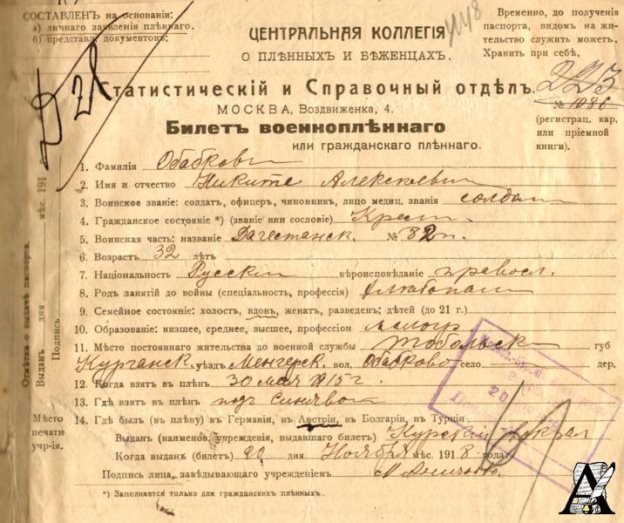 СОСТАВЛЕН НА ОСНОВАНІИ:
а) личнаго заявленія плѣннаго.
б) представл. документовъ.
Д 21
ЦЕНТРАЛЬНАЯ КОЛЛЕГІЯ
О ПЛѢННЫХЪ И БѢЖЕНЦАХЪ.
Статистическій и Справочный отдѣлъ.
МОСКВА, Воздвиженка, 4.
Билетъ военноплѣннаго
или гражданскаго плѣннаго.
Временно, до полученія
паспорта, видомъ на жи-
тельство служить можетъ.
Хранить при себѣ.
223
№ 1086
(регистрац. кар.
или пріемной
книги).
1. Фамилія Обабковъ
2. Имя и отчество Никита Алексѣевичъ
3. Воинское званіе: солдатъ, офицеръ, чиновникъ, лицо медиц. званія солдатъ
4. Гражданское состояніе *) (званіе или сословіе) Крест.
5. Воинская часть: названіе Дагестанск. № 82 п.
6. Возрастъ 32 лѣтъ
7. Національность Русскій вѣроисповѣданіе правосл.
8. Родъ занятій до войны (спеціальность, профессія)
9. Семейное состояніе: холостъ, вдовъ, женатъ, разведенъ; дѣтей (до 21 г.)
10. Образованіе: низшее, среднее, высшее, профессіон
11. Мѣсто постояннаго жительства до военной службы Тобольск губ
Курганск. уѣзд Менгерск. вол. Обабково село дер.
12. Когда взятъ въ плѣнъ 30 мая 1915 г.
13. Гдѣ взятъ въ плѣнъ подъ
14. Гдѣ былъ (въ плѣну) въ Германіи, въ Австріи, въ Болгаріи, въ Турціи
Выданъ (наименов. учрежденія, выдавшаго билетъ) Курскій вокзал
Когда выданъ (билетъ) 20 дня Ноября мѣс. 1918 года.
Подпись лица, завѣдывающаго учрежденіемъ
*) Заполняется только для гражданскихъ плѣнныхъ.
Отмѣтка о выдачѣ паспорта.
Выданъ дня мѣс. 191
Подпись
Мѣсто
печати
учр-ія.
20
А